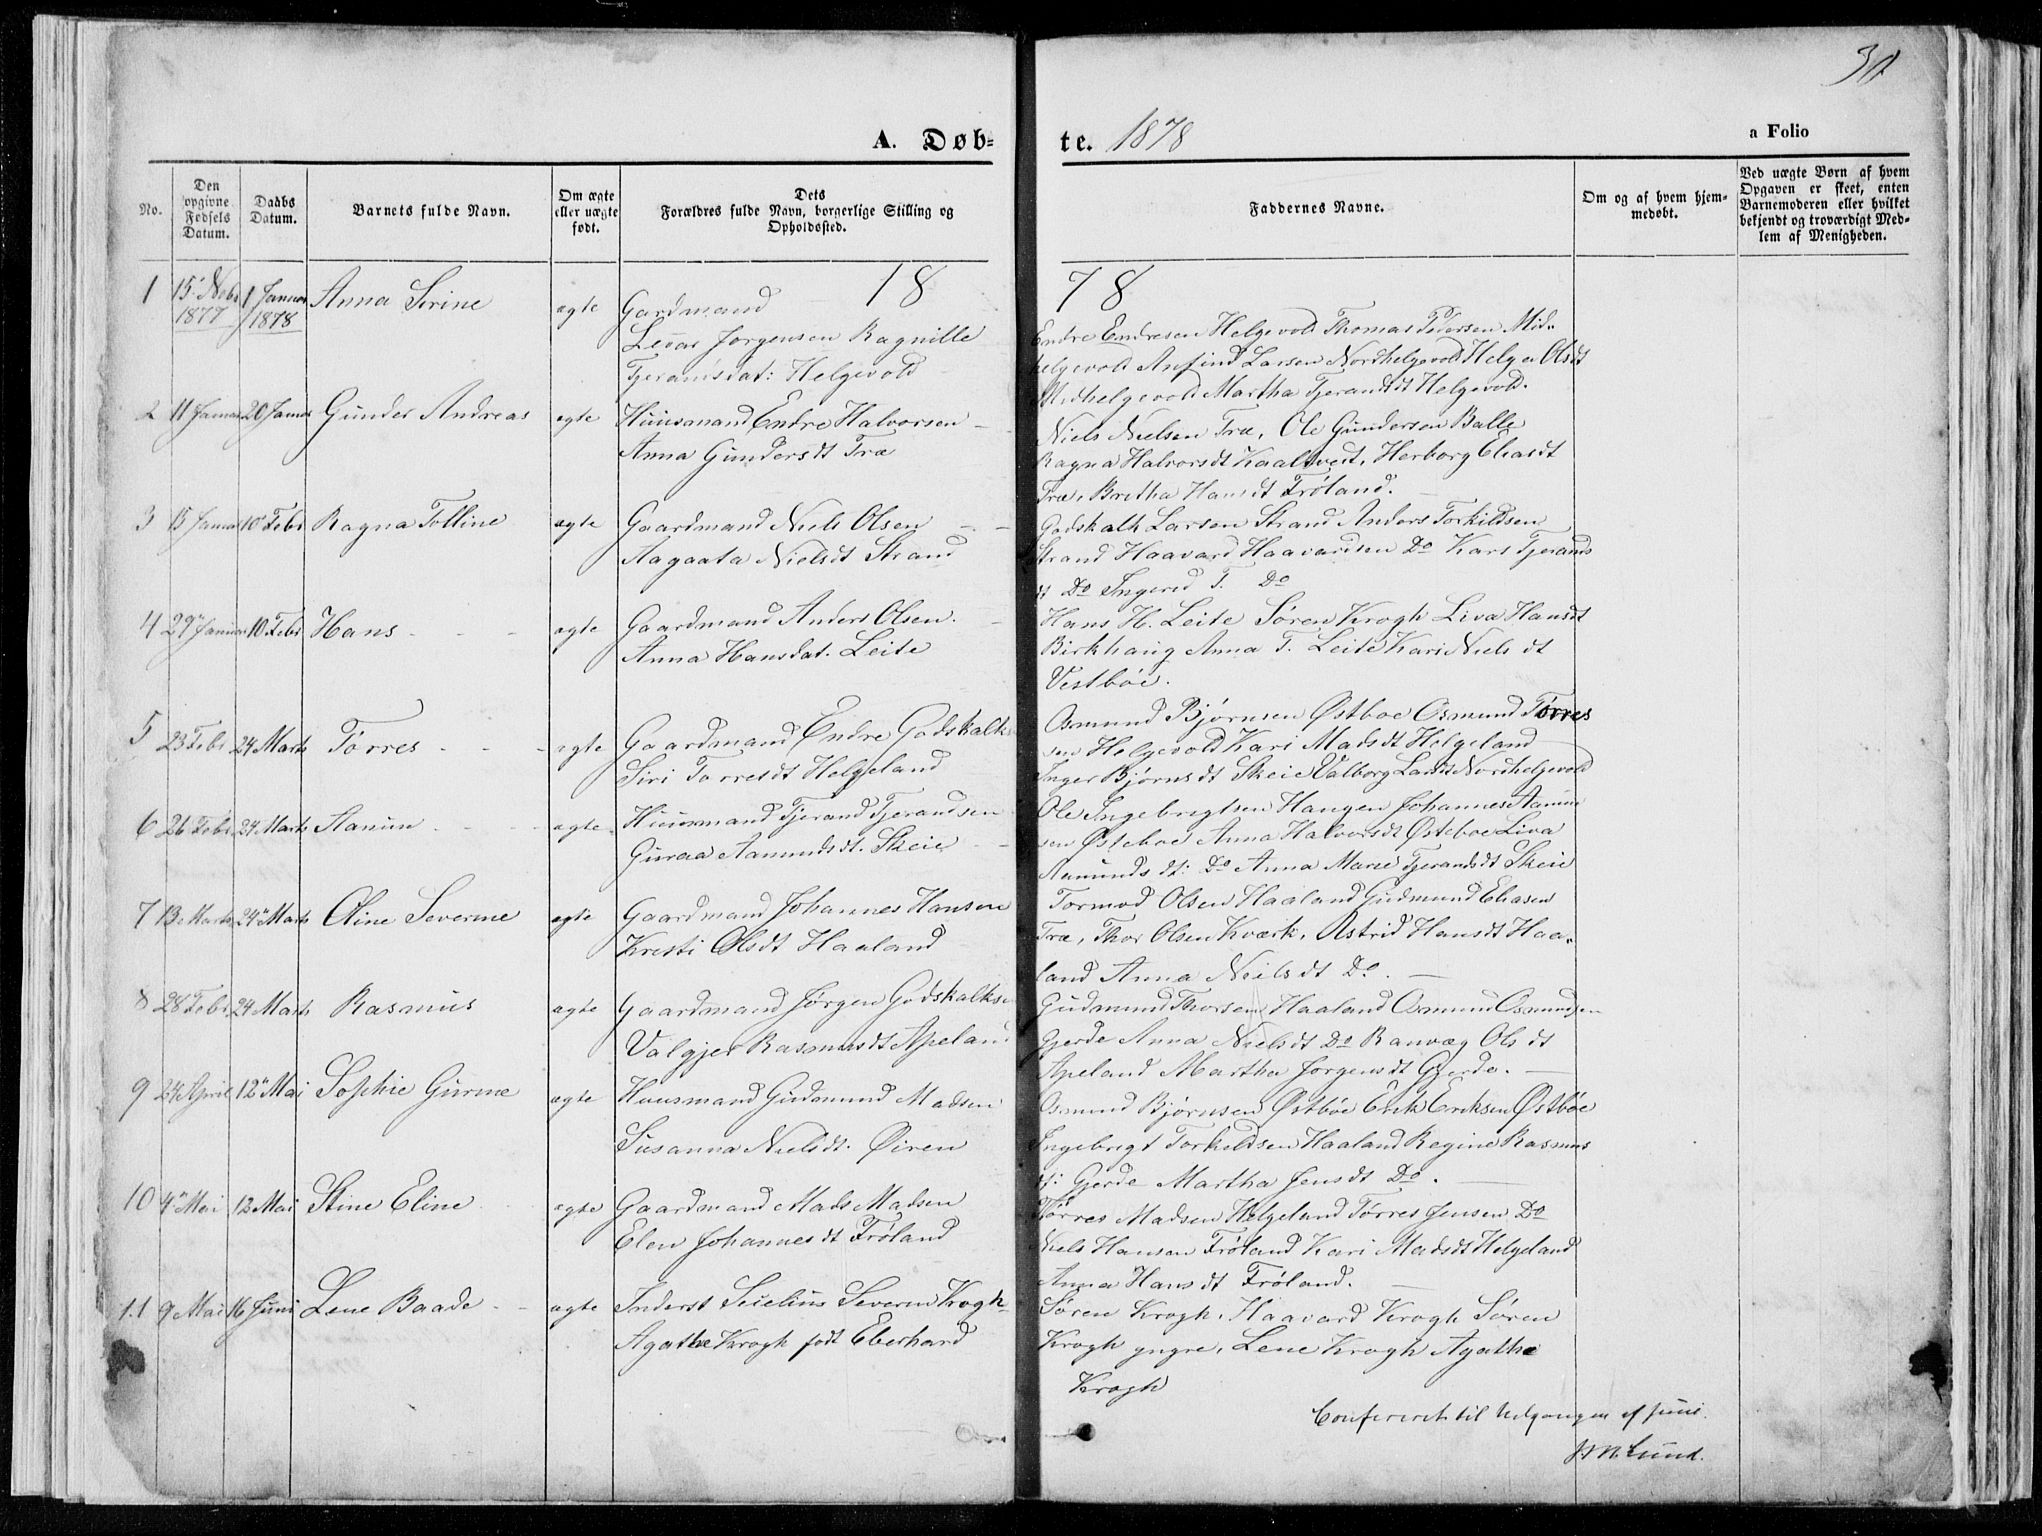 31
A. Døb-
te. 1878
a Folio
No.
Den opgivne Fødsels Datum.
Daabs Datum.
Barnets fulde Navn.
Om ægte eller uægte født.
Dets Forældres fulde Navn, borgerlige Stilling og Opholdssted.
Faddernes Navne.
Om og af hvem hjemmedøbt.
Ved uægte Børn af hvem Opgaven er skeet, enten Barnemoderen eller hvilket bekjendt og troværdigt Medlem af Menigheden.
18 78
1 15 Nobr 1877 1 Januar 1878 Anna Serine ægte Gardmand
Levar Jørgensen Ragnille
Tjeransdat: Helgevold
Endre Endresen Helgevold Thomas Pedersen Mid-
helgevold Anfind Larsen Nordhelgevold Helga Olsdt
Midhelgevold Martha Tjerandsdt Helgevold.
2 11 Januar 20 Januar Gunder Andreas ægte Huusmand Endre Halvorsen
Anna Gundersdt Træ
Niels Nielsen Træ, Ole Gundersen Balle
Ragna Halvorsdt Kaaltvedt, Herborg Eliasdt
Træ, Bretha Hansdt Frøland.
3 15 Januar 10 Febr Ragna Tolline ægte Gaardmand Niels Olsen
Aagaata Nielsdt Strand
Godskalk Larsen Strand Anders Torkildsen
Strand Haavard Haavardsen Do Kari Tjerands
dt Do Ingerid T. Do
4 29 Januar 10 Febr Hans ægte Gaardmand Anders Olsen.
Anna Hansdat. Leite
Hans H. Leite Søren Krogh Liva Hansdt
Birkhaug Anna T. Leite Kari Niels dt
Vestbøe.
5 23 Febr 24 Marts Tørres ægte Gaardmand Endre Godskalks
Siri Tørresdt Helgeland
Osmund Bjørnsen Østboe Osmund Tørres
sen Helgevold Kari Madsdt Helgeland
Inger Bjørnsdt Skeie Valborg Larsdt Nordhelgevold
6 26 Febr 24 Marts Aanun ægte Huusmand Tjerand Tjerandsen
Guraa Aamundsdt. Skeie
Ole Ingebrigtsen Haugen Johannes Aamun
sen Østeboe Anna Halvorsdt Østeboe Liva
Aamunds dt: Do Anna Marie Tjerandsdt Skeie
7 13 Marts 24 Marts Oline Severine ægte Gaardmand Johannes Hansen
Kresti Olsdt Haaland
Tormod Olsen Haaland Gudmund Eliasen
Træ, Thor Olsen Kværk, Astrid Hansdt Haa-
land Anna Nielsdt Do.
8 28 Febr 24 Marts Rasmus ægte Gaardmand Jørgen Godskalks
Valgjer Rasmusdt Apeland
Gudmund Thorsen Haaland Osmund Osmundsen
Gjerde Anna Nielsdt Do Ranvæg Ols dt
Apeland Martha Jørgensdt Gjerde.
9 24 April 12 Mai Sophie Gurine ægte Huusmand Gudmund Madsen
Susanna Nielsdt. Øiren
Osmund Bjørnsen Østbøe Erik Eriksen Østbøe
Ingebrigt Torkildsen Haaland Regine Rasmus
dt: Gjerde Martha Jensdt Do.
10 4 Mai 12 Mai Stine Eline ægte Gaardmand Mads Madsen
Elen Johannesdt Frøland
Tørres Madsen Helgeland Tørres Jensen Do
Niels Hansen Frøland Kari Madsdt Helgeland
Anna Hansdt Frøland.
11 9 Mai 16 Juni Lene Baade ægte Inderst Severin Krogh
Agathe Krogh født Eberhard
Søren Krogh, Haavard Krogh Søren
Krogh yngre, Lene Krogh Agathe
Krogh
Confereret til Udgangen af Juni.
Lund.